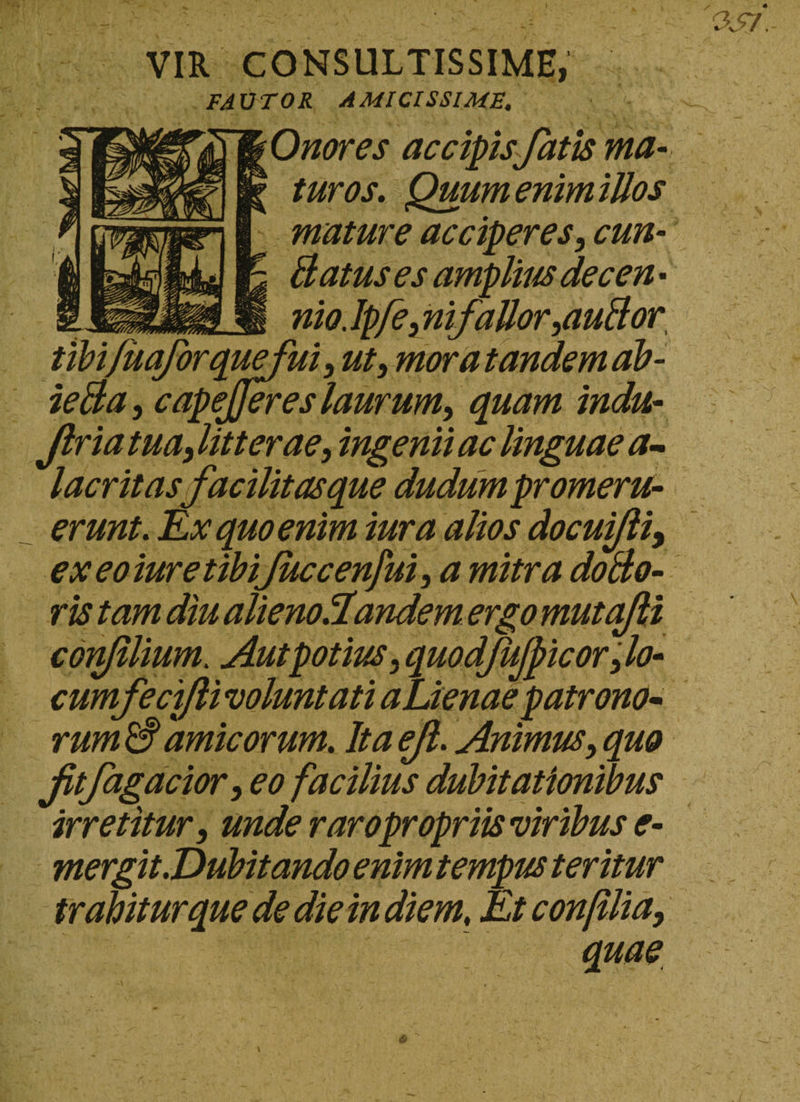 351.
VIR CONSULTISSIME,
FAUTOR AMICISSIME.
HOnores accipis ſatis ma-
turos. Quum enim illos
mature acciperes, cun-
ctatus es amplius decen-
nio. Ipſe, ni fallor, auctor
tibi ſuaſorque fui, ut, mora tandem ab-
iecta, capeſſeres laurum, quam indu-
ſtria tua, litterae, ingenii ac linguae a-
lacritas facilitasque dudum promeru-
erunt. Ex quo enim iura alios docuiſti,
ex eo iure tibi ſuccenſui, a mitra docto-
ris tam diu alieno. Tandem ergo mutaſti
conſilium. Aut potius, quod ſuſpicor, lo-
cum feciſti voluntati a Lienae patrono-
rum & amicorum. Ita eſt. Animus, quo
ſit ſagacior, eo facilius dubitationibus
irretitur, unde raro propriis viribus e-
mergit. Dubitando enim tempus teritur
trahiturque de die in diem. Et conſilia,
quae